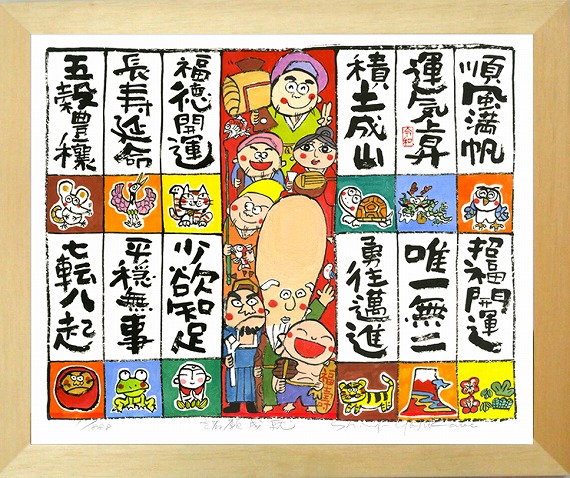 順風満帆
運気上昇
積土成山
福徳開運
長寿延命
五穀豊穣
招福開運
唯一無二
勇往邁進
少欲知足
平穏無事
七転八起
諸願成就